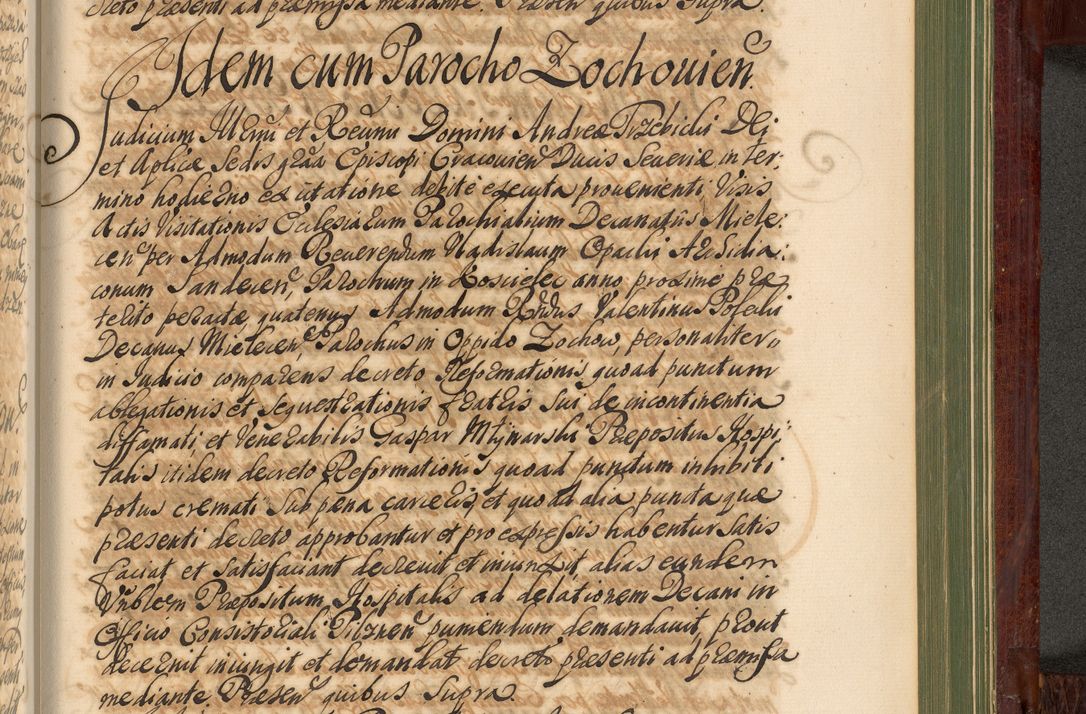 creto præsenti ad præmissa mediante. Præsen quibus supra.
Idem cum Parocho Zochouien.
Judicium Illmi et Reumi Domini Andreæ Trzebicki Dei
et Aplicæ Sedis gratia Episcopi Cracouien Ducis Seueriæ in ter-
mino hodierno ex citatione debite executa prouenienti, Visis
Actis Visitationis Ecclesiarum Parochialium Decanatus Miele:
cen per Admodum Reuerendum Vladislaum Opacki Archidia:
conum Sandecen, Parochum in Koscielec anno proxime præ
terito peractæ, quatenus Admodum Rndus Valentinus Poselii
Decanus Mielecen, Parochus in Oppido Zochow, personaliter
in Judicio comparens decreto Reformationis quoad punctum
ablegationis et sequestrationis fratris sui de incontinentia
diffamati, et Venerabilis Gaspar Młynarski Præpositus Hospi:
talis itidem decreto Reformationis quoad punctum inhibiti
potus cremati sub pena carceris, et quoad alia puncta quæ
præsenti decreto approbantur et pro expressis habentur satis
faciat et satisfaciant decreuit et iniunxit, alias eundem
Vnblem Præpositum Hospitalis ad delationem Decani in
Officio Consistoriali Pilznen puniendum demandauit, prout
decernit iniungit et demandat decreto præsenti ad præmissa
mediante. Præsen quibus supra.